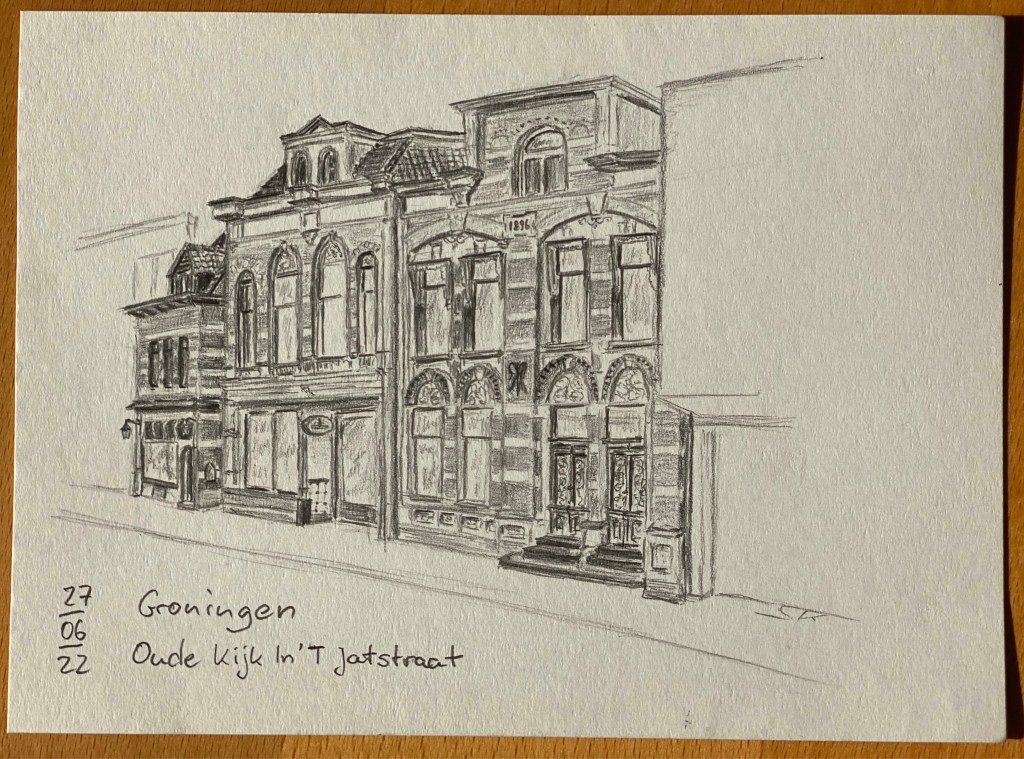 1896
27
06
22
Groningen
Oude Kijk In'T Jatstraat